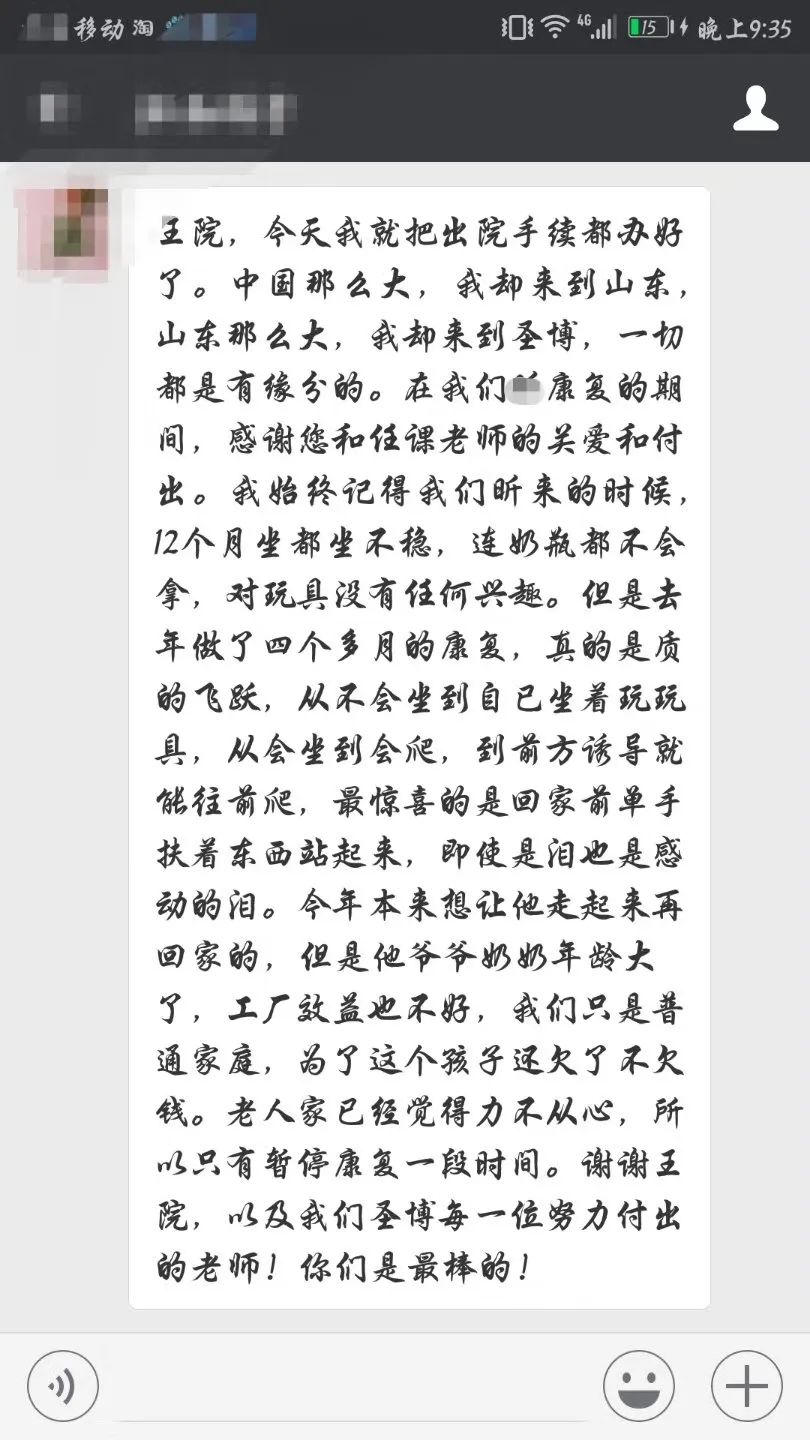 移动 淘 4G 15 晚上9:35
王院，今天我就把出院手续都办好
了。中国那么大，我却来到山东，
山东那么大，我却来到圣博，一切
都是有缘分的。在我们康复的期
间，感谢您和任课老师的关爱和付
出。我始终记得我们昕来的时候，
12个月坐都坐不稳，连奶瓶都不会
拿，对玩具没有任何兴趣。但是去
年做了四个多月的康复，真的是质
的飞跃，从不会坐到自己坐着玩玩
具，从会坐到会爬，到前方诱导就
能往前爬，最惊喜的是回家前单手
扶着东西站起来，即使是泪也是感
动的泪。今年本来想让他走起来再
回家的，但是他爷爷奶奶年龄大
了，工厂效益也不好，我们只是普
通家庭，为了这个孩子还欠了不欠
钱。老人家已经觉得力不从心，所
以只有暂停康复一段时间。谢谢王
院，以及我们圣博每一位努力付出
的老师！你们是最棒的！